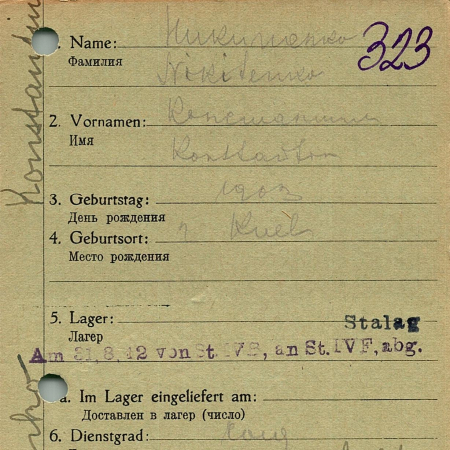 1. Name: Никитенко 323
Фамилия
Nikitenko
2. Vornamen: Константин
Имя
Konstantin
3. Geburtstag: 1903
День рождения
4. Geburtsort: г Киев
Место рождения
5. Lager: Stalag
Лагер
Am 31,8,42 von St.IVB, an St.IVF, abg.
a. Im Lager eingeliefert am:
Доставлен в лагер (число)
6. Dienstgrad:
Konstantin